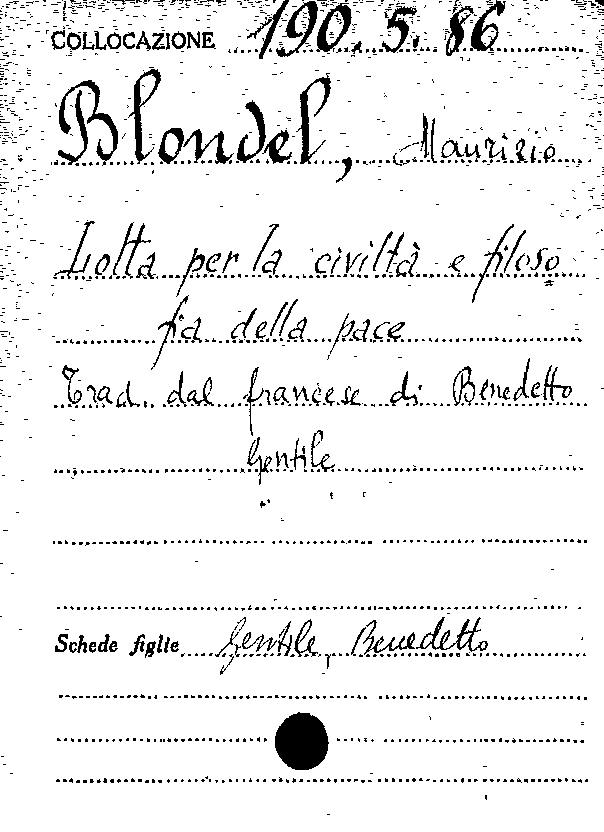 COLLOCAZIONE 190.5.86
Blondel, Maurizio
Lotta per la civiltà e filoso
fia della pace
Trad. dal francese di Benedetto
Gentile
Schede figlie Gentile, Benedetto